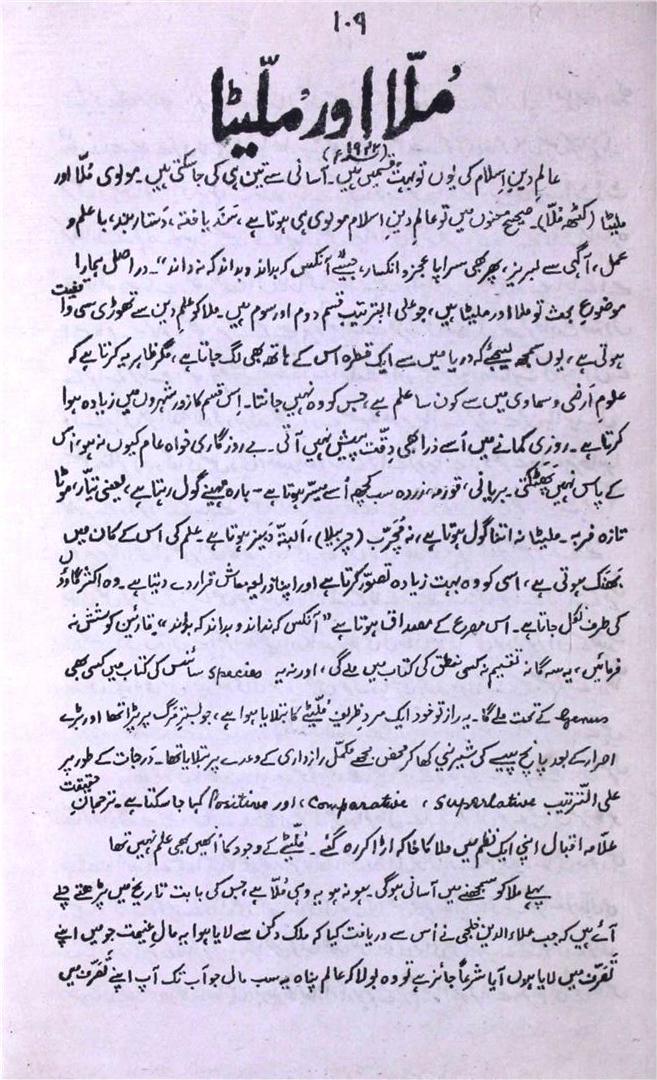 ۱۰۹
مُلّا اور مُلّیٹا
(۱۹۲۲ء)
عالمِ دینِ اسلام کی یوں تو بہت قسمیں ہیں۔ آسانی سے تین ہی کی جا سکتی ہیں۔ مولوی مُلّا اور
ملیٹا (کٹھ مُلّا)۔ صحیح معنوں میں تو عالمِ دینِ اسلام مولوی ہی ہوتا ہے، سَنَد یافتہ، دستار بند، با علم و
عمل، آگہی سے لبریز، پھر بھی سراپا عجز و انکسار، جیسے آنکس کہ بداند و بداند کہ نداند"۔ در اصل ہمارا
موضوعِ بحث تو ملا اور ملیٹا ہیں، جو علی الترتیب قسم دوم اور سوم ہیں۔ ملا کو علمِ دین سے تھوڑی سی واقفیت
ہوتی ہے، یوں سمجھ لیجئے کہ دریا میں سے ایک قطرہ اس کے ہاتھ بھی لگ جاتا ہے، مگر ظاہر یہ کرتا ہے کہ
علومِ اَرضی و سماوی میں سے کون سا علم ہے، جس کو وہ نہیں جانتا۔ اس قسم کا زور شہروں میں زیادہ ہوا
کرتا ہے۔ روزی کمانے میں اُسے ذرا بھی دقّت پیش نہیں آتی۔ بے روزگاری خواہ عام کیوں نہ ہو، اس
کے پاس نہیں پَھٹکتی۔ بریانی، قورمہ، زردہ سب کچھ اُسے میسّر ہوتا ہے۔ بارہ مہینے گول رہتا ہے، یعنی تیّار، موٹا
تازہ فربہ۔ ملیٹا نہ اتنا گول ہوتا ہے، نہ مُچرّب (چربیلا)، اَلبتّہ دَبیز ہوتا ہے۔ علم کی اس کے کان میں
بَھنَک ہوتی ہے، اسی کو وہ بہت زیادہ تصوّر کرتا ہے اور اپنا ذریعۂ معاش قرار دے دیتا ہے۔ وہ اکثر گاؤوں
کی طرف نکل جاتا ہے۔ اس مصرع کے مصداق ہوتا ہے "آنکس کہ نداند و بداند کہ بداند"۔ قارئین کوشش نہ
فرمائیں، یہ سہ گانہ تقسیم نہ کسی منطق کی کتاب میں ملے گی، اور نہ یہ species سائنس کی کتاب میں کسی بھی
genus کے تحت ملے گا۔ یہ راز تو خود ایک مردِ ظریف مُلیٹے کا بتلایا ہوا ہے، جو بسترِ مرگ پر پڑا تھا اور بڑے
اصرار کے بعد پانچ پیسے کی شیرنی کھا کر محض مجھے مکمّل رازداری کے وعدے پر بتلایا تھا۔ درجات کے طور پر
علی التّرتیب Superlative ، Comparative، اور Positive کہا جا سکتا ہے۔ ترجمانِ حقیقت
علامہ اقبال اپنی ایک نظم میں ملا کا خاکہ اڑا کر رہ گئے۔ مُلیٹے کے وجود کا اُنھیں بھی علم نہیں تھا
پہلے ملا کو سمجھنے میں آسانی ہوگی۔ ہو نہ ہو یہ وہی مُلّا ہے جس کی بابت تاریخ میں پڑھتے چلے
آئے ہیں کہ جب علاء الدین خلجی نے اُس سے دریافت کیا کہ ملک دکن سے لایا ہوا یہ مالِ غنیمت جو میں اپنے
تَصَرّف میں لایا ہوں آیا شرعاً جائز ہے تو وہ بولا کہ عالم پناہ یہ سب مال جو اَب تک آپ اپنے تَصَرّف میں